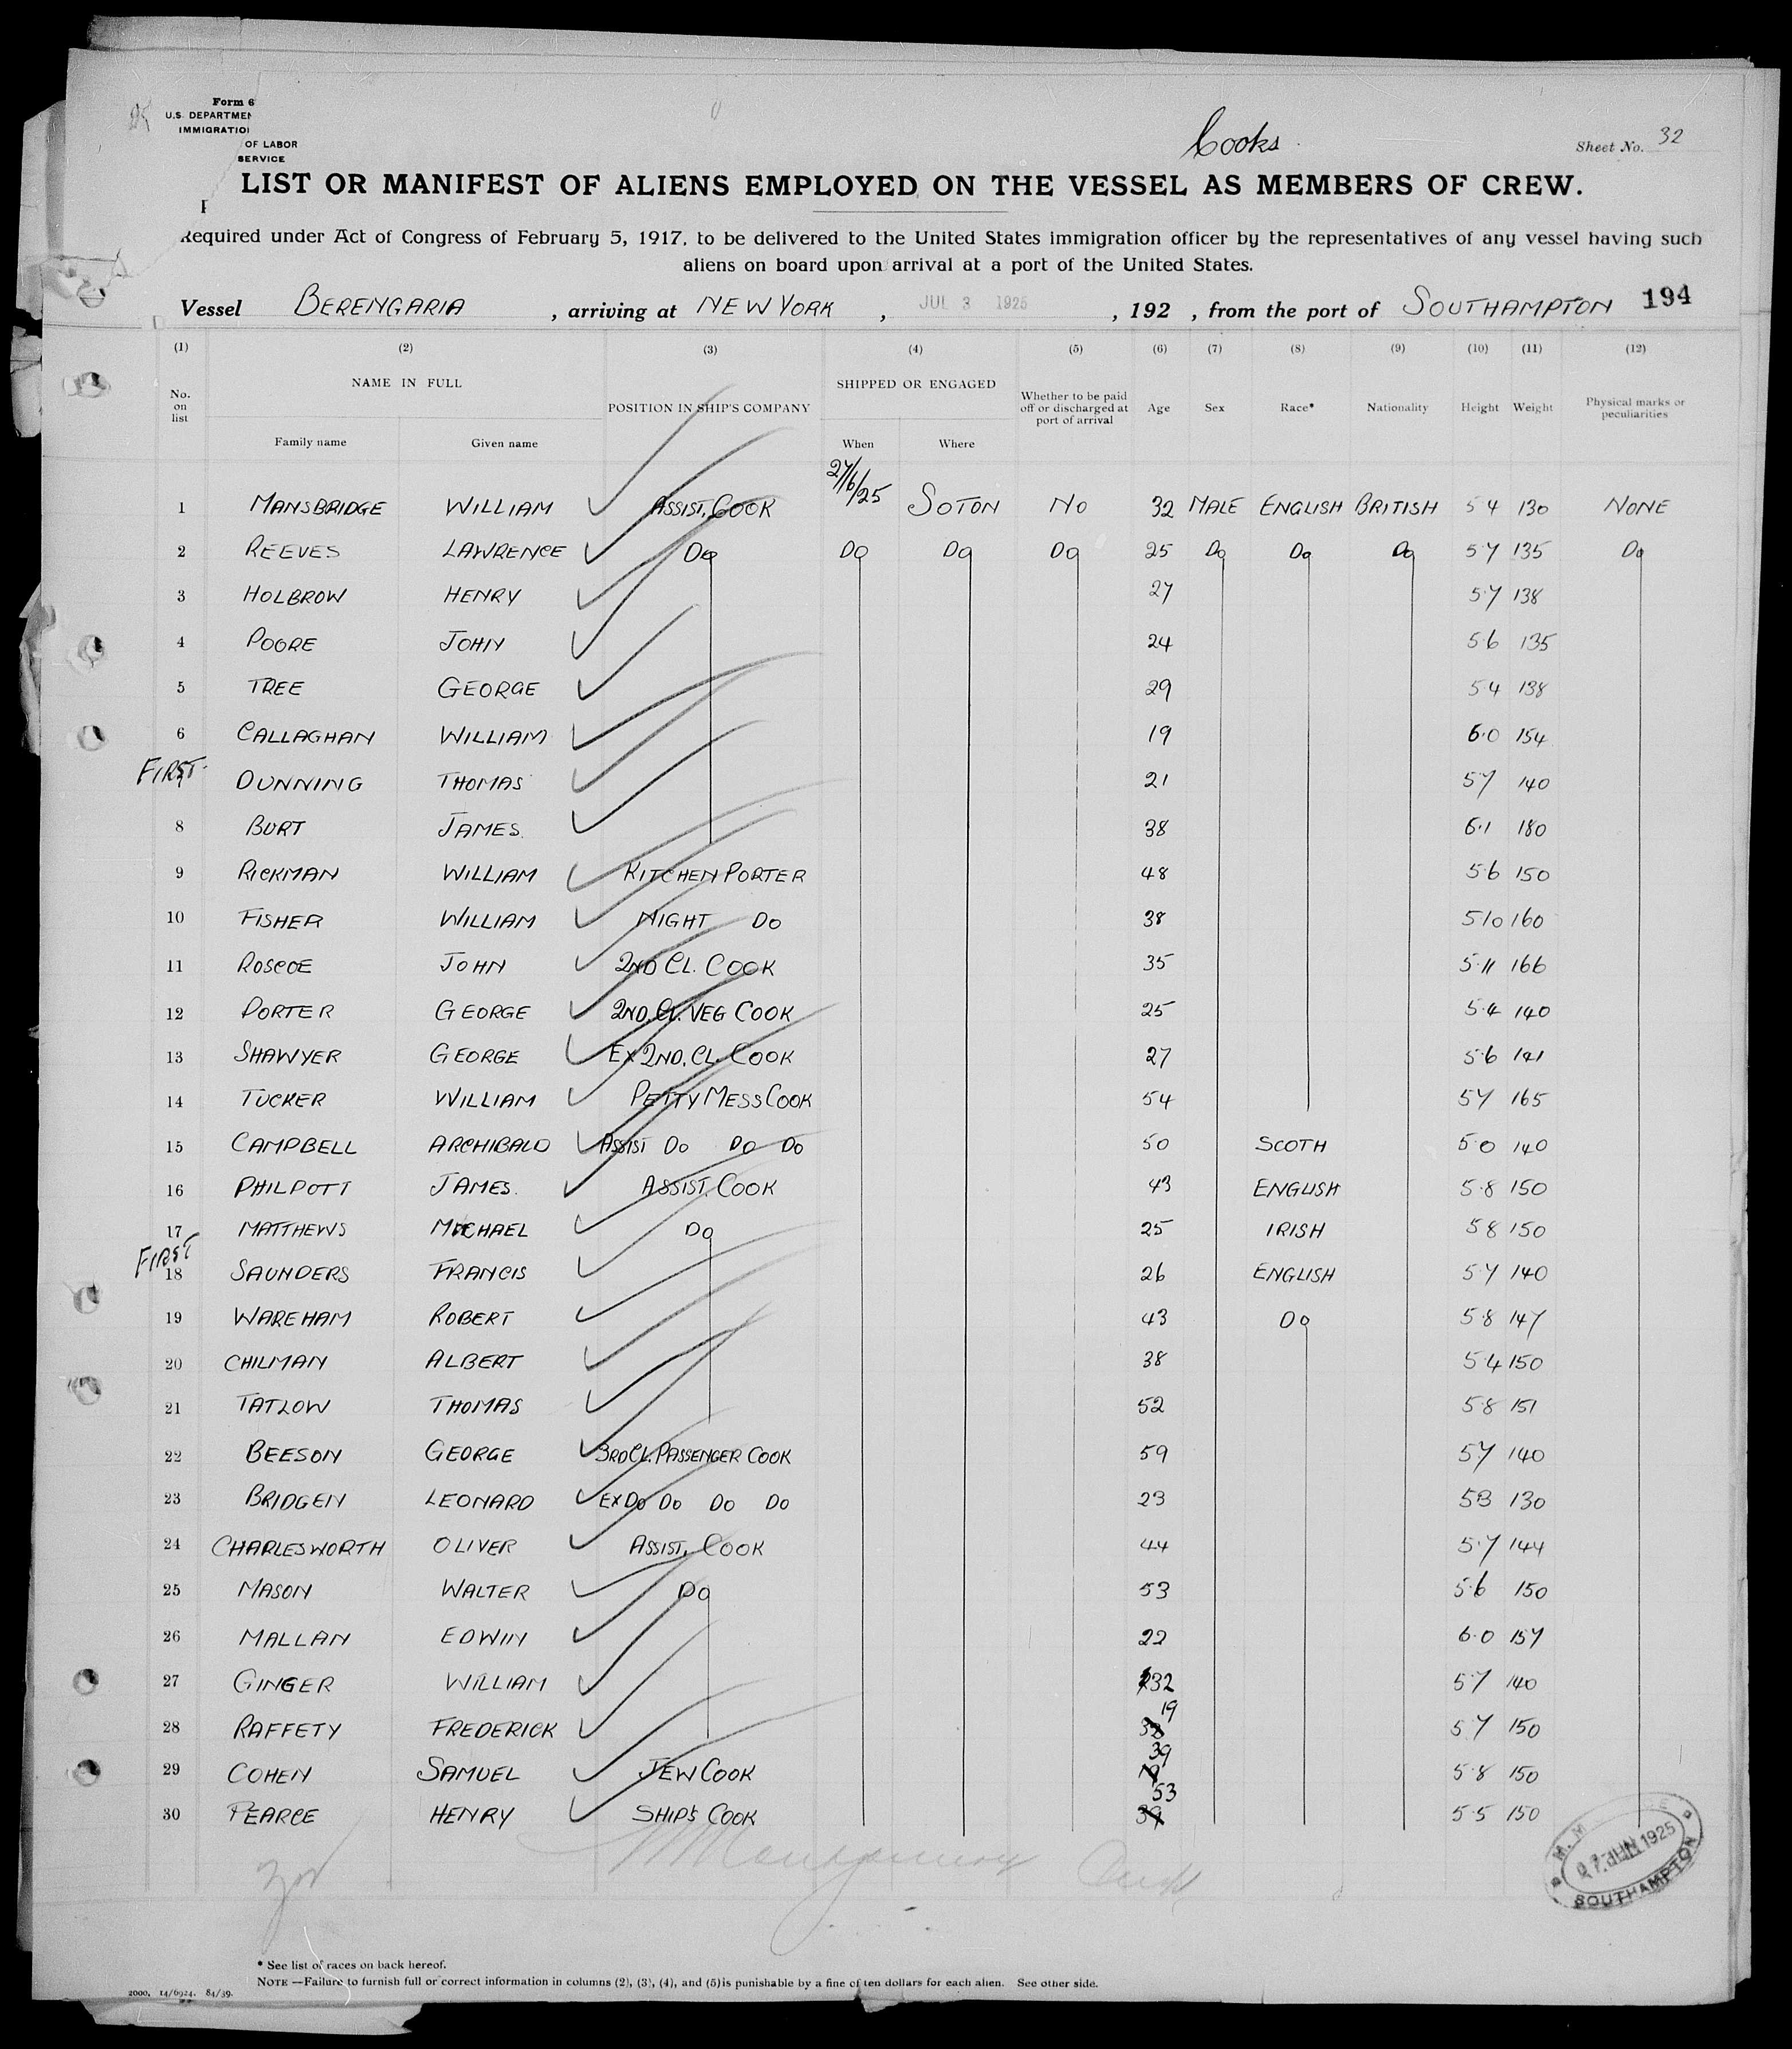 Form 6
U.S. DEPARTMEN
IMMIGRATIO
OF LABOR
SERVICE
Cooks
Sheet No. 32
LIST OR MANIFEST OF ALIENS EMPLOYED ON THE VESSEL AS MEMBERS OF CREW.
Required under Act of Congress of February 5, 1917, to be delivered to the United States immigration officer by the representatives of any vessel having such
aliens on board upon arrival at a port of the United States.
Vessel BERENGARIA, arriving at NEW YORK, JUL 3 1925, 192, from the port of SOUTHAMPTON 194
(1) (2) (3) (4) (5) (6) (7) (8) (9) (10) (11) (12)
No. on list NAME IN FULL Family name Given name POSITION IN SHIP'S COMPANY SHIPPED OR ENGAGED When Where Whether to be paid off or discharged at port of arrival Age Sex Race* Nationality Height Weight Physical marks or peculiarities
1 MANSBRIDGE WILLIAM ASSIST. COOK 27/6/25 SOTON NO 32 MALE ENGLISH BRITISH 5 4 130 NONE
2 REEVES LAWRENCE DO DO DO DO 25 DO DO DO 5·7 135 DO
3 HOLBROW HENRY 27 5·7 138
4 POORE JOHN 24 5·6 135
5 TREE GEORGE 29 5 4 138
6 CALLAGHAN WILLIAM 19 6·0 154
FIRST 7 DUNNING THOMAS 21 5 7 140
8 BURT JAMES 38 6·1 180
9 RICKMAN WILLIAM KITCHEN PORTER 48 5·6 150
10 FISHER WILLIAM NIGHT DO 38 5 10 160
11 ROSCOE JOHN 2ND CL. COOK 35 5·11 166
12 PORTER GEORGE 2ND. CL. VEG COOK 25 5·4 140
13 SHAWYER GEORGE EX 2ND. CL. COOK 27 5·6 141
14 TUCKER WILLIAM PETTY MESS COOK 54 5 7 165
15 CAMPBELL ARCHIBALD ASSIST DO DO DO 50 SCOTH 5·0 140
16 PHILPOTT JAMES ASSIST. COOK 43 ENGLISH 5·8 150
17 MATTHEWS MICHAEL DO 25 IRISH 5 8 150
FIRST 18 SAUNDERS FRANCIS 26 ENGLISH 5·7 140
19 WAREHAM ROBERT 43 DO 5·8 147
20 CHILMAN ALBERT 38 5·4 150
21 TATLOW THOMAS 52 5·8 151
22 BEESON GEORGE 3RD CL. PASSENGER COOK 59 5 7 140
23 BRIDGEN LEONARD EX DO DO DO DO 23 5 3 130
24 CHARLESWORTH OLIVER ASSIST. COOK 44 5·7 144
25 MASON WALTER DO 53 5·6 150
26 MALLAN EDWIN 22 6·0 157
27 GINGER WILLIAM 32 5·7 140
28 RAFFETY FREDERICK 19 5·7 150
29 COHEN SAMUEL JEW COOK 39 5·8 150
30 PEARCE HENRY SHIP'S COOK 53 5·5 150
27 JUN 1925
SOUTHAMPTON
* See list of races on back hereof.
NOTE —Failure to furnish full or correct information in columns (2), (3), (4), and (5) is punishable by a fine of ten dollars for each alien. See other side.
2000, 14/6924. 84/39.